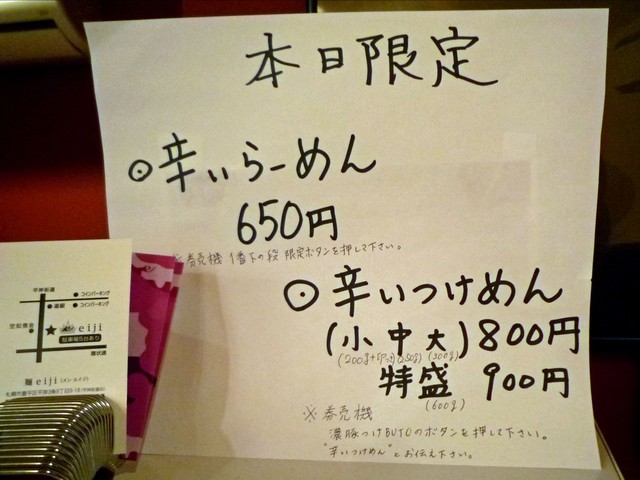 本日限定
⊙辛いらーめん
650円
※券売機 1番下の段 限定ボタンを押して下さい。
⊙辛いつけめん
(小中大)800円
特盛 900円
(600g)
※券売機
濃豚つけBUTOのボタンを押して下さい。
"辛いつけめん"とお伝え下さい。
平岸街道
コインパーキング
コインパーキング
eiji
駐車場5台あり
環状通
麺eiji(メンエイジ)